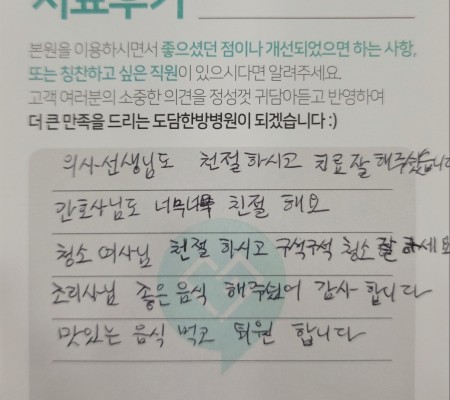 치료후기
본원을 이용하시면서 좋으셨던 점이나 개선되었으면 하는 사항,
또는 칭찬하고 싶은 직원이 있으시다면 알려주세요.
고객 여러분의 소중한 의견을 정성껏 귀담아듣고 반영하여
더 큰 만족을 드리는 도담한방병원이 되겠습니다 :)
의사선생님도 천절하시고 치료잘해주셨습니다
간호사님도 너무너무 친절 해요
청소 여사님 천절 하시고 구석구석 청소 잘 하세요
조리사님 좋은 음식 해주셨어 감사 합니다
맛있는 음식 먹고 퇴원 합니다